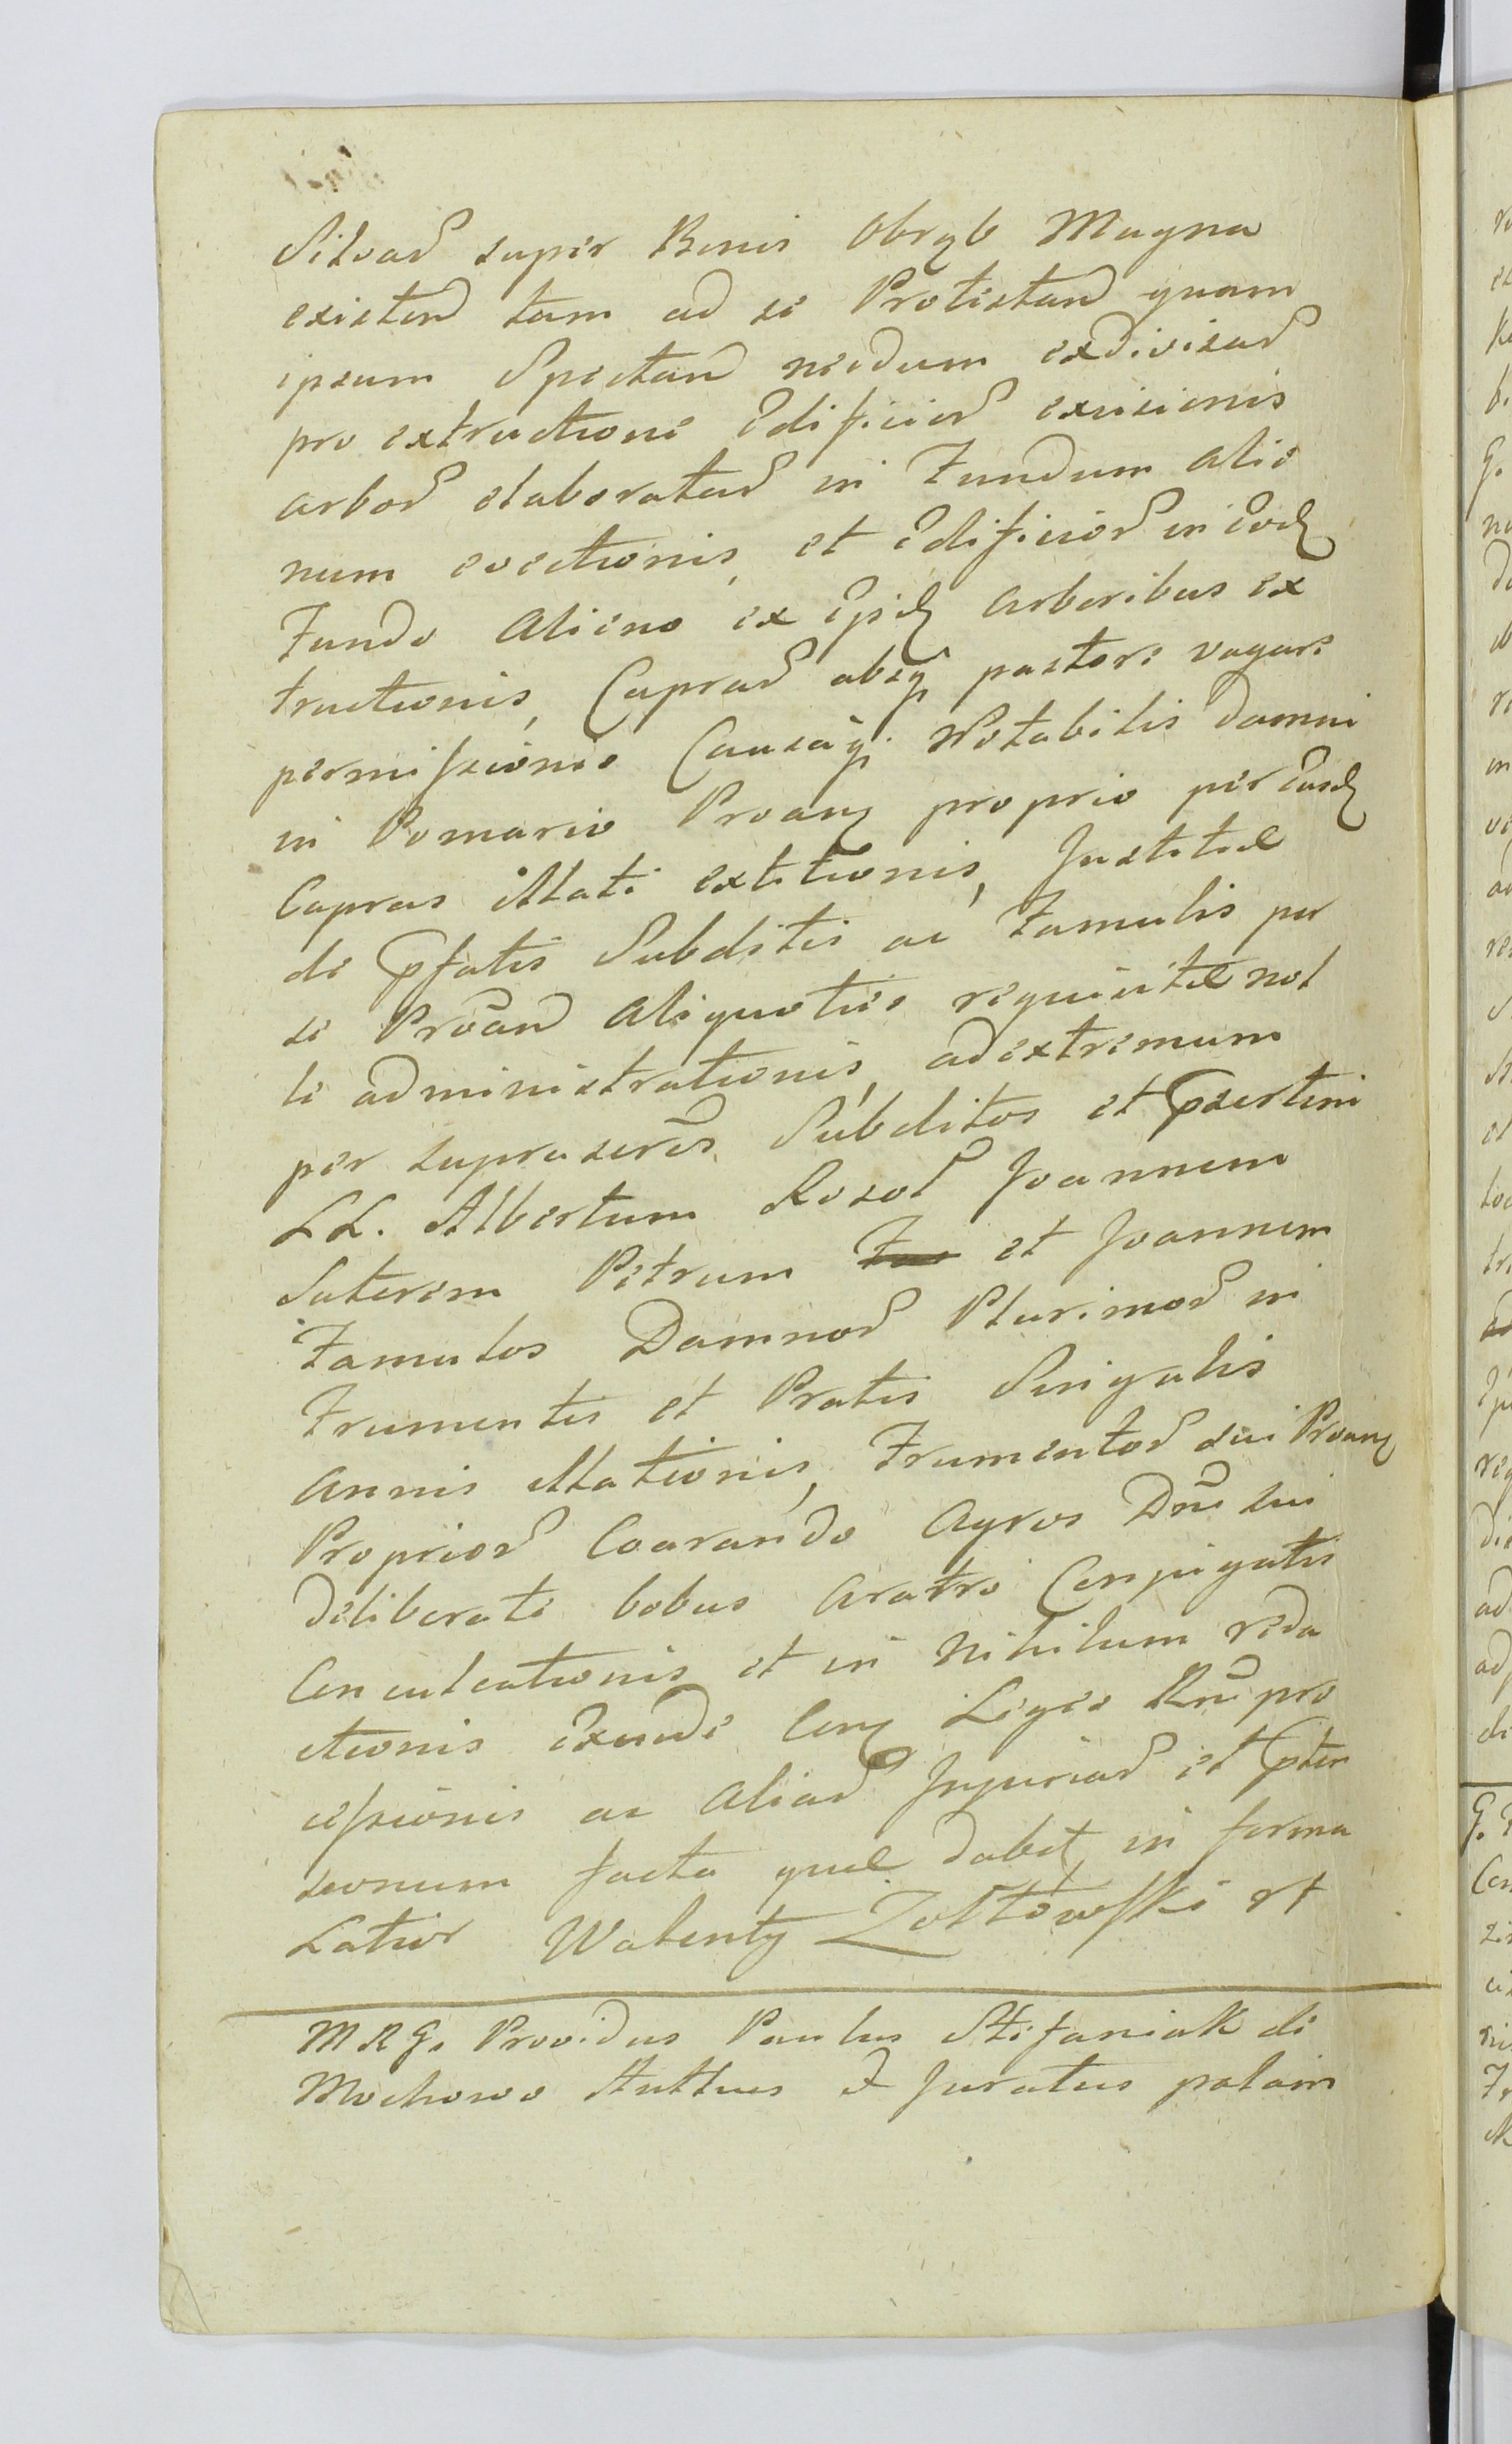 Silvaɽ super Bonis Obrąb Magna
existenɖ tam ad se Protestanɖ quam
ipsum Spectanɖ necdum exdivisaɽ
pro extructione Edificioɽ excisionis
arboɽ elaborataɽ in Fundum Alie
num evectionis, et Edificioɽ in Eodꝫ
Fundo Alieno ex Eisdꝫ Arboribus ex
tructionis, Capraɽ absqꝫ pastore vagare
permissionis Causaqꝫ Notabilis damni
in Pomario Proanꝫ proprio per Easdꝫ
Capras illati extitionis, Justitiæ
de Pfatis Subditis ac Famulis per
se Proanɖ Aliquoties requisitæ nol
le administrationis, ad extremum
per suprascrēs Subditos et Psertim
LL. Albertum Rosoł Joannem
Sutorem Petrum et Joannem
Famulos Damnoɽ Plurimoɽ in
Frumentis et Pratis Singulis
Annis illationis, Frumentoɽ sui Proanꝫ
Proprioɽ Coarando Agros Dnī sui
deliberate bobus Aratro Conjugatis
Conculcationis et in Nihilum reda
ctionis Exinde Cenꝫ Leges Rnī pro
cessionis ac Aliaɽ Injuriaɽ et Pten
sionum facta quæ dabet in forma
Latior Walenty Żółtowski rt
MRG. Providus Paulus Stefaniak de
Mochowo Aultus & Juratus palam